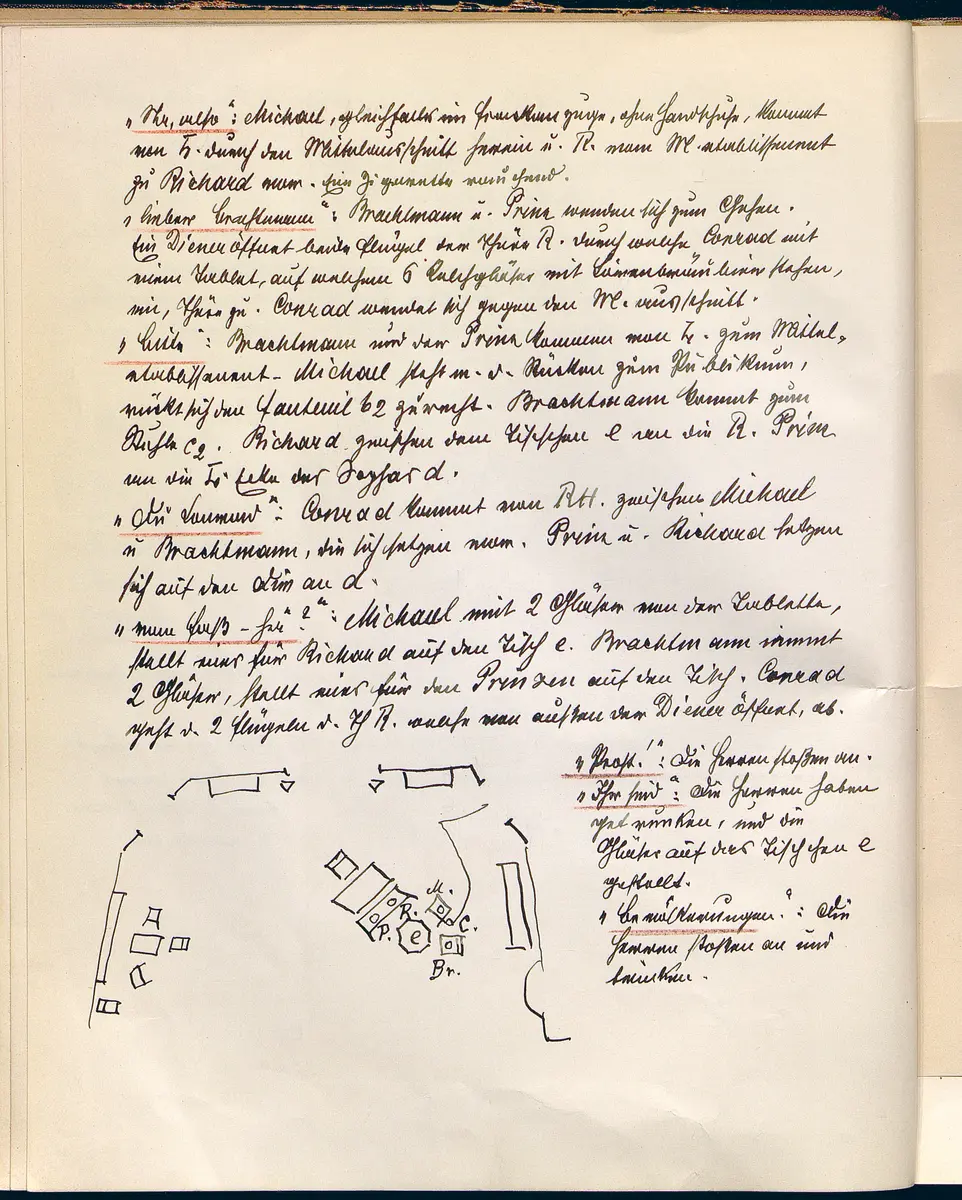 „Na, also“: Michael, gleichfalls im Frackanzuge, ohne Handschuhe, kommt
von L. durch den Mittelausschnitt herein u. R. vom M. etablissement
zu Richard vor. Eine Zigarette rauchend.
„lieber Brachtmann“: Brachtmann u. Prinz wenden sich zum Gehen.
Ein Diener öffnet beide Flügel der Thüre R. durch welche Conrad mit
einem Tablet, auf welchem 5 Kelchgläser mit Löwenbräubier stehen,
ein, Thüre zu. Conrad wendet sich gegen den M. ausschnitt.
„bitte“: Brachtmann und der Prinz kommen von L. zum Mittel-
etablissement – Michael steht m. d. Rücken zum Publikum,
rückt sich den Fauteuil b2 zurecht. Brachtmann kommt zum
Stuhle c2. Richard zwischen dem Tischchen e an die R. Prinz
an die L. Ecke des Sophas d.
„Du Conrad“: Conrad kommt von RH. zwischen Michael
u Brachtmann, die sich setzen vor. Prinz u. Richard setzen
sich auf den Divan d.
„vom Faß – he?“: Michael nimt 2 Gläser von der Tablette,
stellt eines für Richard auf den Tisch e. Brachtmann nimmt
2 Gläser, stellt eines für den Prinzen auf den Tisch. Conrad
geht d. 2 Flügeln d. Th R. welche von außen der Diener öffnet, ab.
„Prost!“: Die Herren stoßen an.
„Ihr seid“: Die Herren haben
getrunken, und die
Gläser auf das Tischchen e
gestellt.
„Bevölkerungen.“: Die
Herren stoßen an und
trinken.
M.
R.
C.
P.
e
Br.